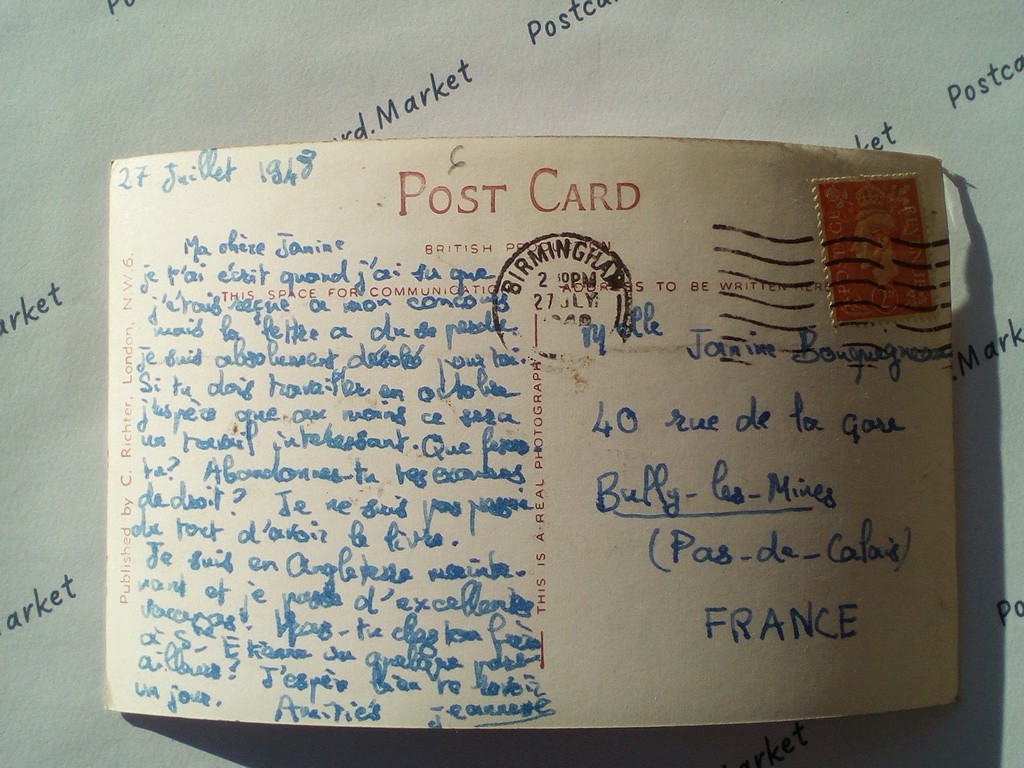 27 Juillet 1948
POST CARD
BRITISH
THIS SPACE FOR COMMUNICATION
TO BE WRITTEN HERE
BIRMINGHAM
2 PM
27 JLY
Ma chère Janine
je t'ai écrit quand j'ai su que
j'étais reçue à mon concours
mais la lettre a du se perdre.
je suis absolument désolée pour toi.
Si tu dois travailler en octobre
j'espère que au moins ce sera
un travail intéressant. Que feras
tu? Abandonnes-tu tes examens
de droit? Je ne suis pas
du tout d'avoir le livre.
Je suis en Angleterre mainte-
nant et je passe d'excellentes
vacances! Iras-tu chez ton frère
à St Etienne ou quelque part
ailleurs? J'espère bien te revoir
un jour. Amitiés
Mlle Janine
40 rue de la gare
Bully-les-Mines
(Pas-de-Calais)
FRANCE
Published by C. Richter, London, N.W.6.
THIS IS A REAL PHOTOGRAPH
Postca
rd.Market
Postca
ket
arket
.Mark
.Market
Po
arket